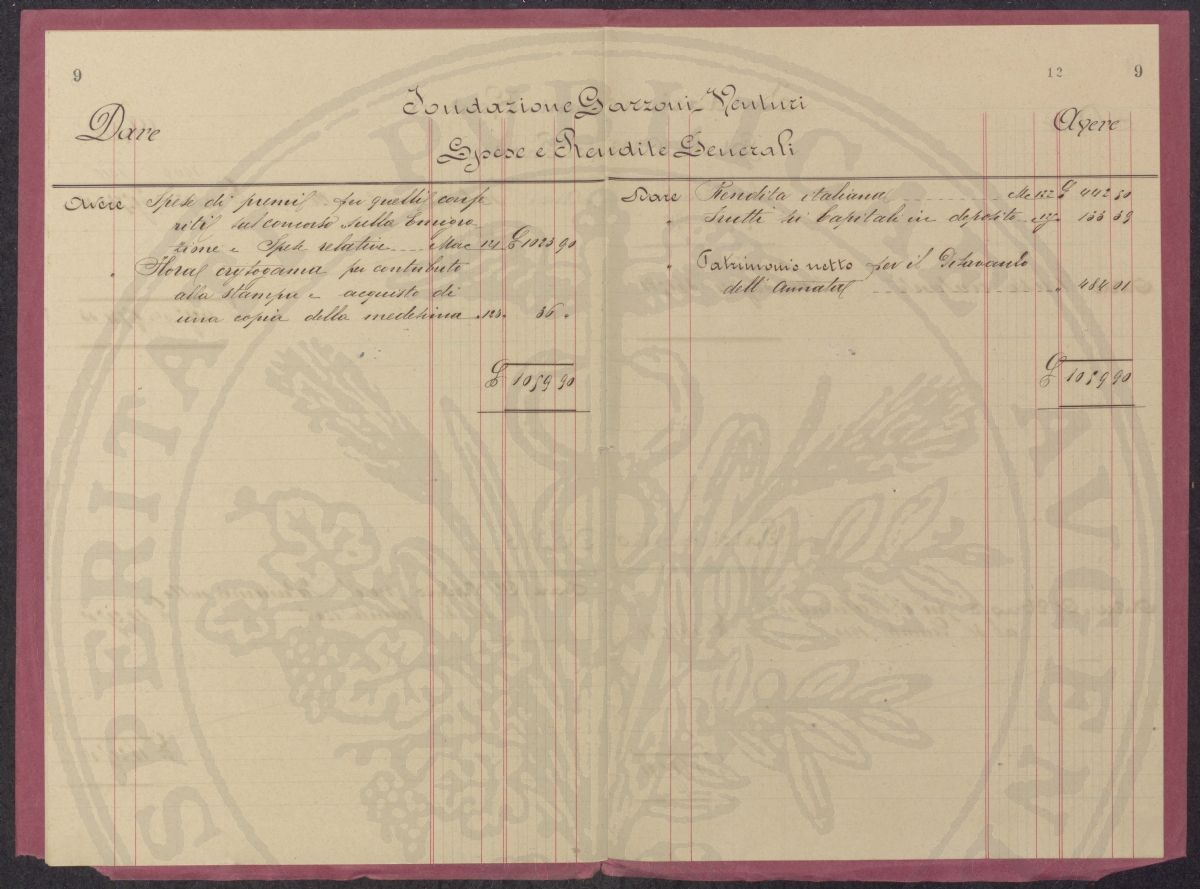 9
12 9
Fondazione Garzoni-Venturi
Dare
Avere
Spese e Rendite Generali
Avere Spese di premii per quelli confe
riti sul concorso sulla Emigra
zione e Spese relative Mac 121 £ 1023 90
" Flora crytogama per contributo
alla stampa e acquisto di
una copia della medesima " 123 " 36 "
£ 1059 90
Dare Rendita italiana £ 442 50
" Frutti sui Capitali in deposito 133 39
" Patrimonio netto per il Disavanzo
dell' Annata " 484 01
£ 1059 90
SPERITAS PUBLICA AUGEN